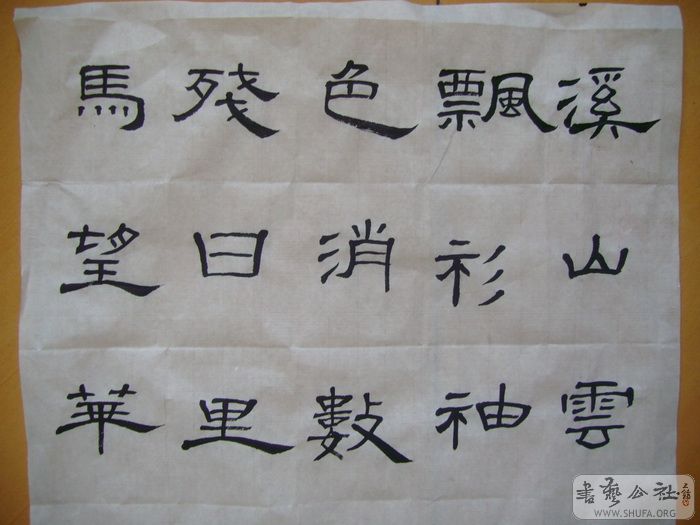 溪山雲
飄衫袖
色消數
殘日里
馬望華
書藝公社
WWW.SHUFA.ORG